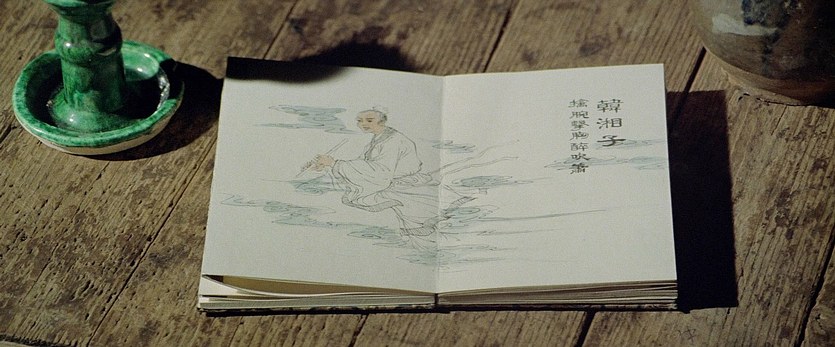 韓湘子
擒腕擊胸醉吹簫